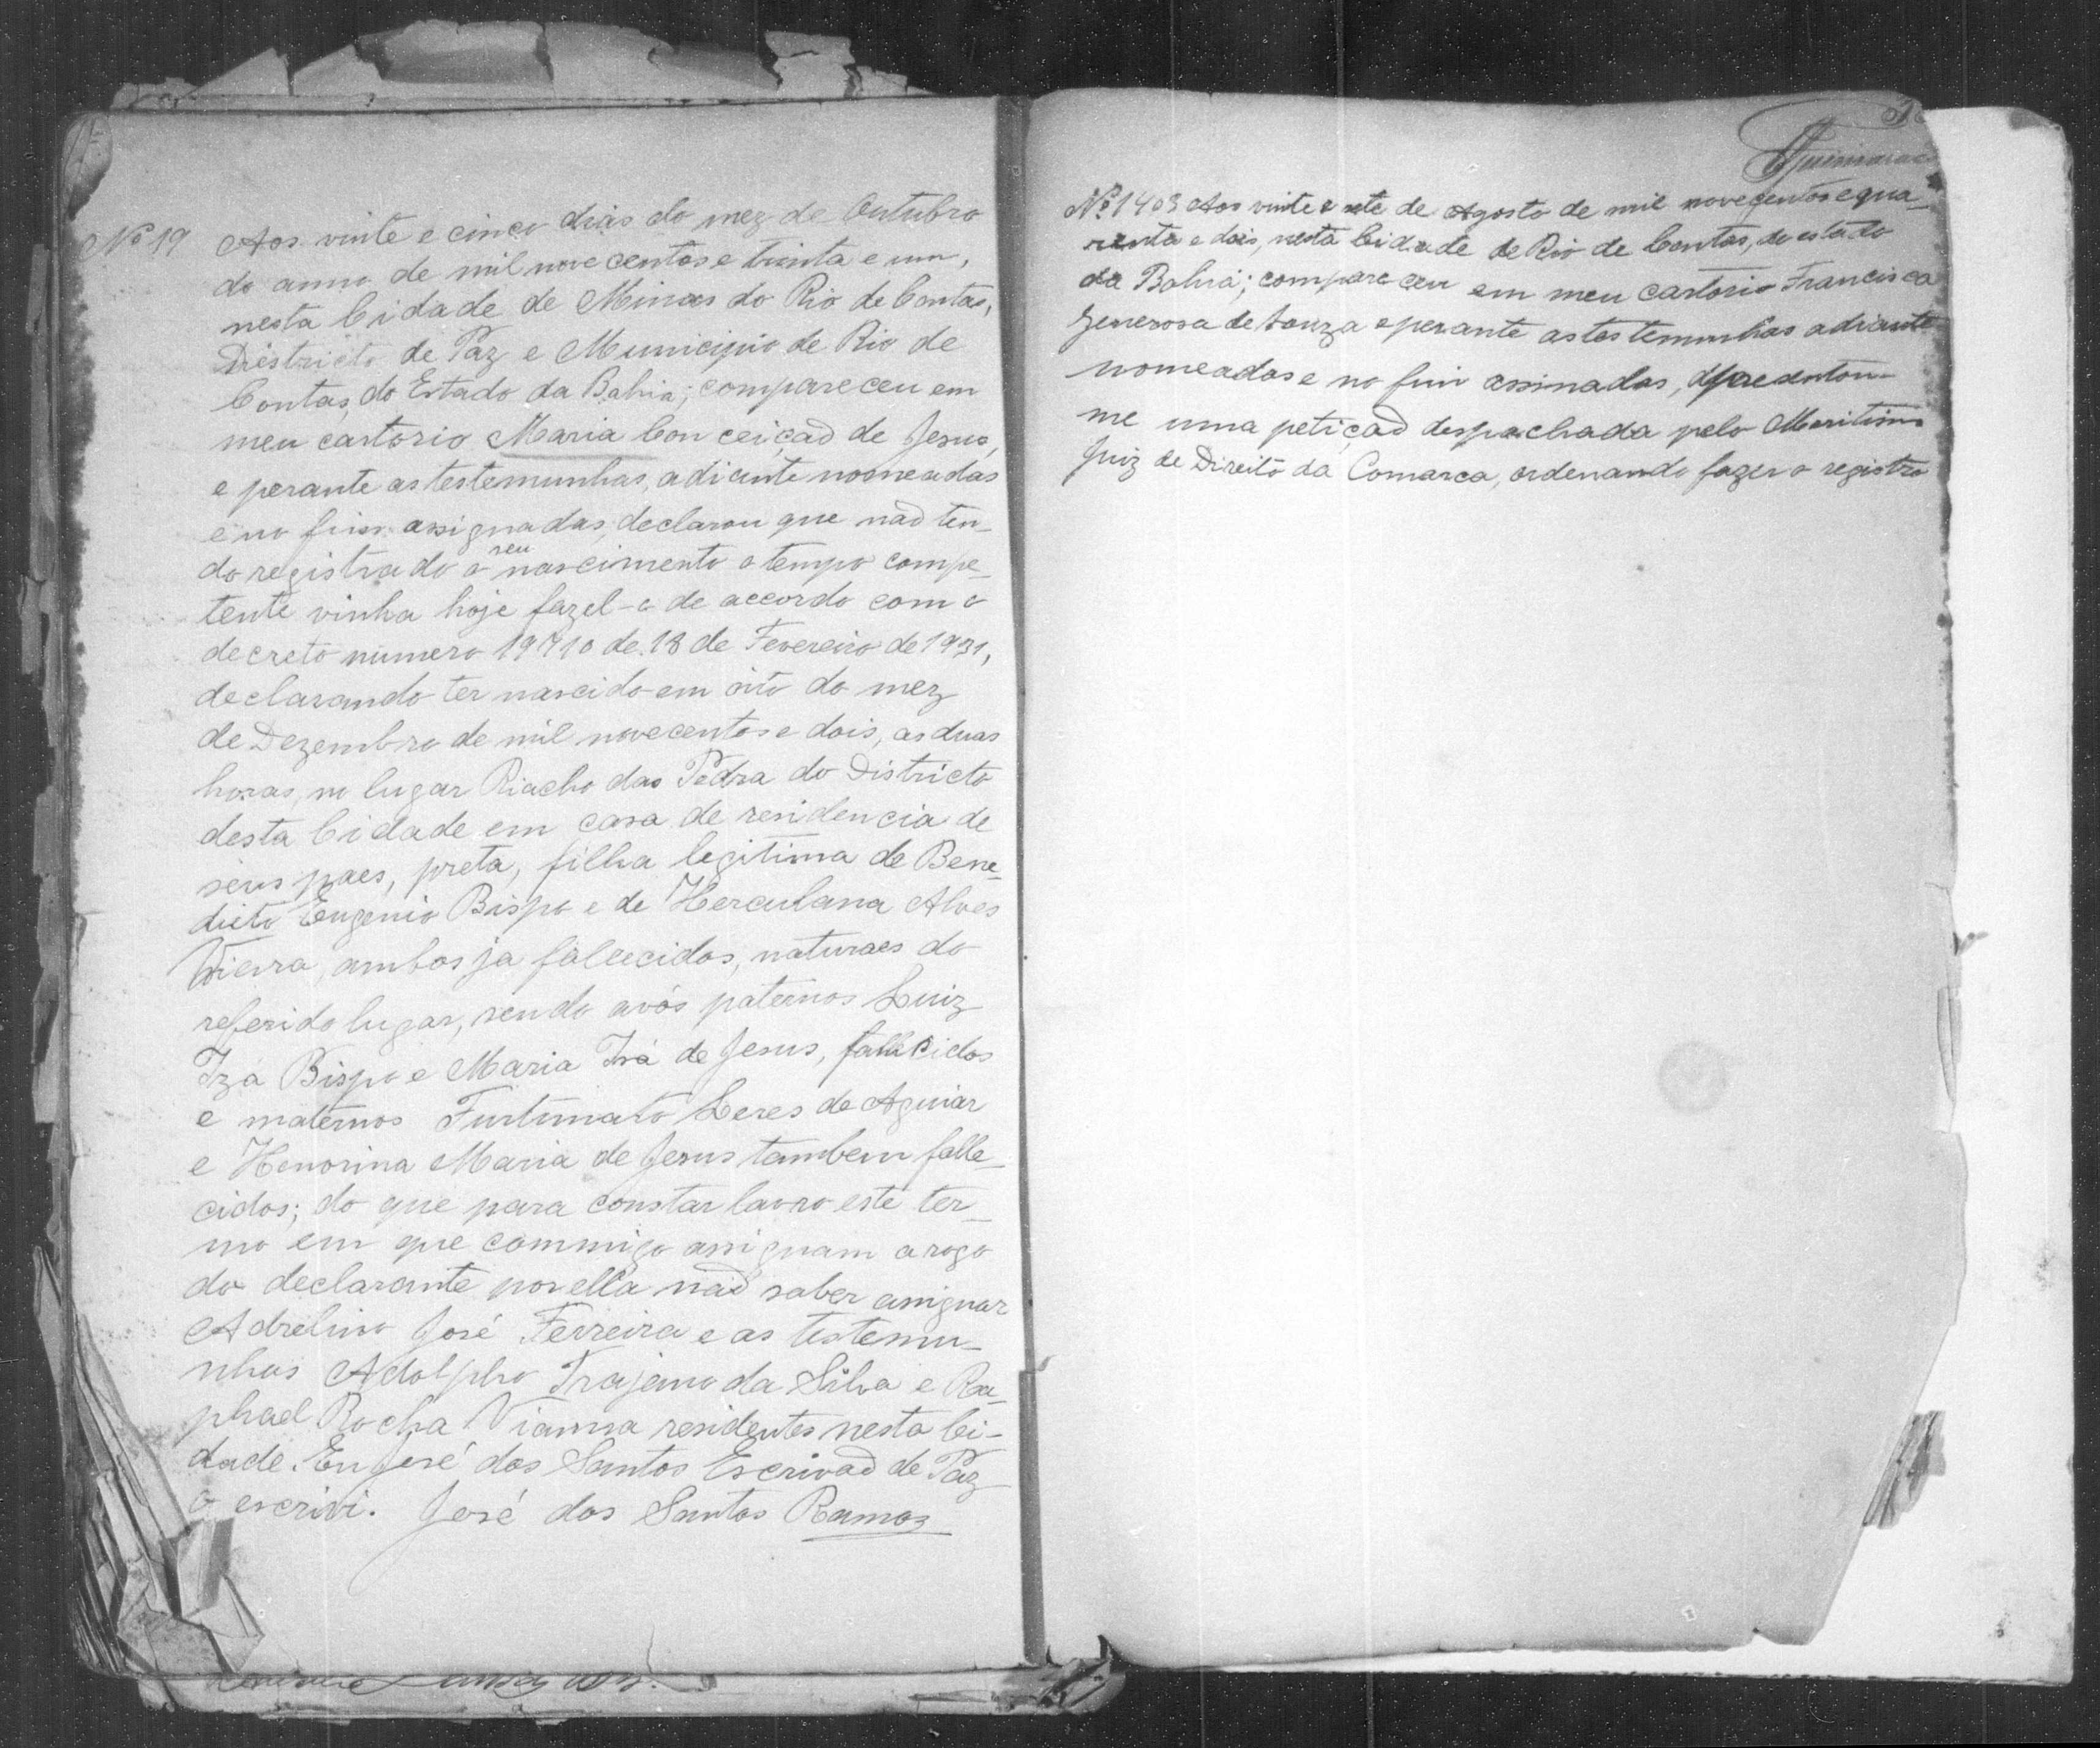 Nº 19 Aos vinte e cinco dias do mez de Outubro
do anno de mil nove centos e trinta e um,
nesta Cidade de Minas do Rio de Contas,
Districto de Paz e Municipio de Rio de
Contas, do Estado da Bahia; compareceu em
meu cartorio Maria Conceição de Jesus,
e perante as testemunhas, adiante nomeadas
e no fim assignadas, declarou que não ten-
do registrado o seu nascimento o tempo compe-
tente vinha hoje fazel-o de accordo com o
decreto numero 19710 de 18 de Fevereiro de 1931,
declarando ter nascido em oito do mez
de Dezembro de mil novecentos e dois, as duas
horas, no lugar Riacho das Pedra do Districto
desta Cidade em casa de residencia de
seus paes, preta, filha legitima de Bene-
dicto Eugenio Bispo e de Herculana Alves
Vieira, ambos ja fallecidos, naturaes do
referido lugar, sendo avós paternos Luiz
Izá Bispo e Maria Isá de Jesus, fallecidos
e maternos Furtunato Leres de Aguiar
e Henorina Maria de Jesus tambem falle-
cidos; do que para constar lavro este ter-
mo em que commigo assignam a rogo
da declarante por ella não saber assignar
Adrelino José Ferreira e as testemu-
nhas Adolpho Trajano da Silva e Ra-
phael Rocha Vianna residentes nesta Ci-
dade. Eu José dos Santos Escrivão de Paz
o escrivi. José dos Santos Ramos
Guimarães
Nº 1403 Aos vinte e sete de Agosto de mil novecentos e qua-
renta e dois, nesta Cidade de Rio de Contas, do estado
da Bahia; compareceu em meu cartorio Francisca
Generosa de Souza e perante as testemunhas adiante
nomeadas e no fim assinadas, apresentou-
me uma petição despachada pelo Meritissimo
Juiz de Direito da Comarca, ordenando fazer o registro